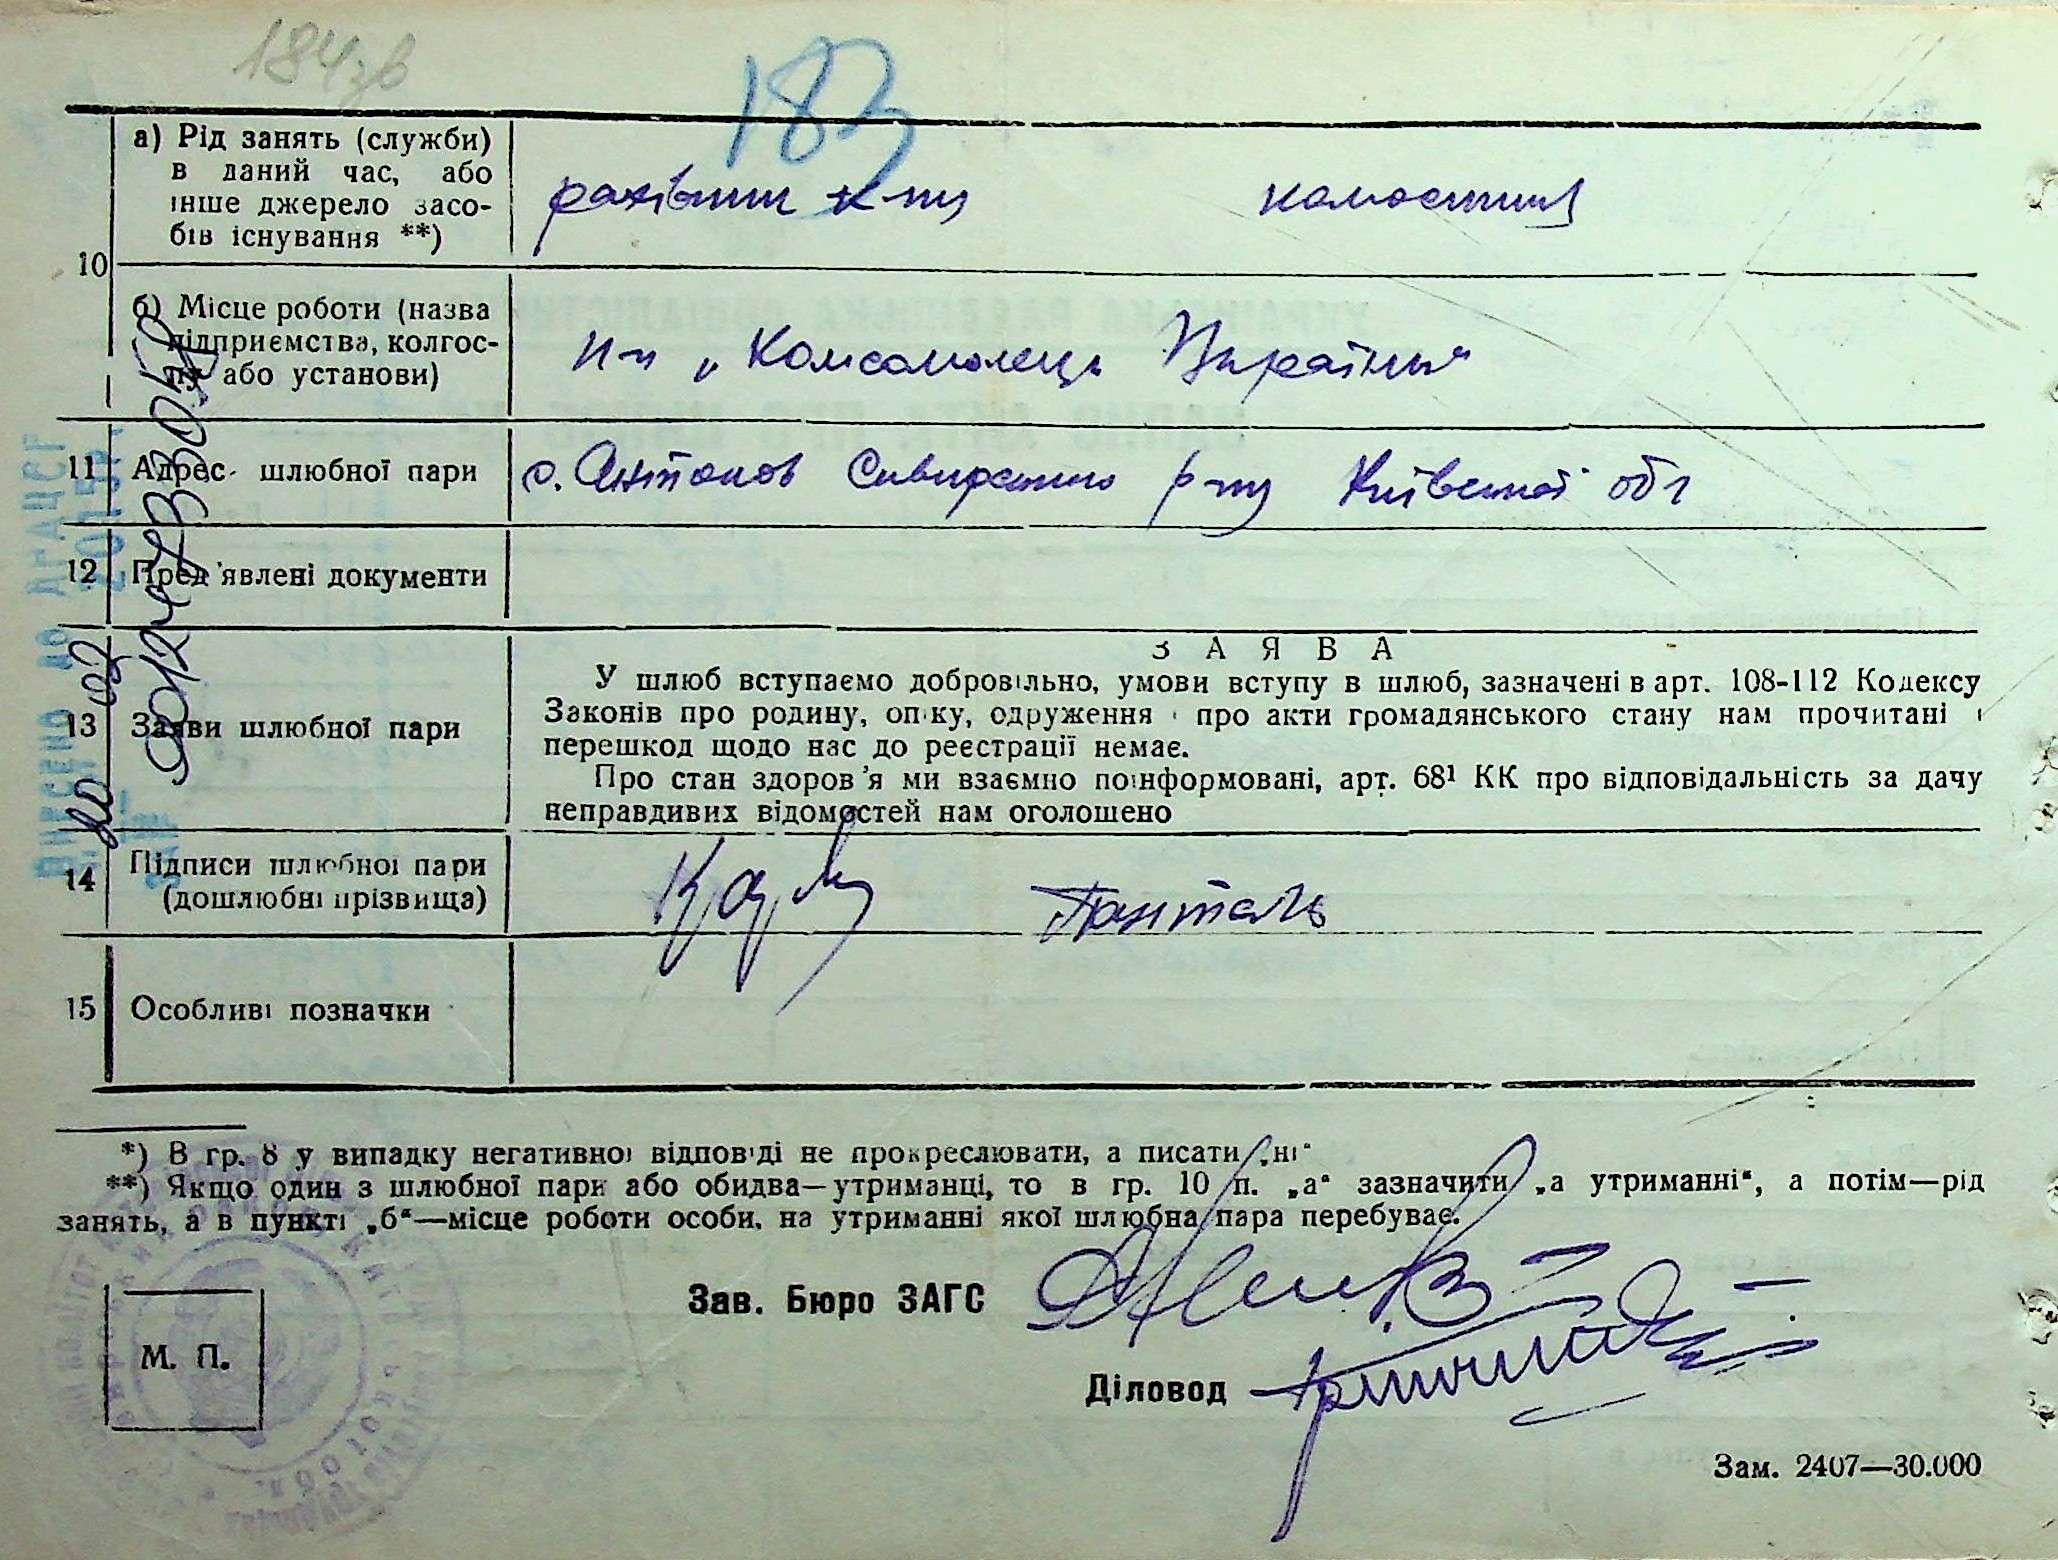 184зв
183
а) Рід занять (служби)
в даний час, або
інше джерело засо-
бів існування **)
рахівник к-пу
10
б) Місце роботи (назва
підприємства, колгос-
пу або установи)
к-п „Комсомолець України“
11 Адрес шлюбної пари
с. Антонов Сквирського р-ну Київської обл
12 Пред'явлені документи
13 Заяви шлюбної пари
ЗАЯВА
У шлюб вступаємо добровільно, умови вступу в шлюб, зазначені в арт. 108-112 Кодексу
Законів про родину, опіку, одруження і про акти громадянського стану нам прочитані і
перешкод щодо нас до реєстрації немає.
Про стан здоров'я ми взаємно поінформовані, арт. 68¹ КК про відповідальність за дачу
неправдивих відомостей нам оголошено
14 Підписи шлюбної пари
(дошлюбні прізвища)
15 Особливі позначки
*) В гр. 8 у випадку негативної відповіді не прокреслювати, а писати „ні“
**) Якщо один з шлюбної пари або обидва—утриманці, то в гр. 10 п. „а“ зазначити „а утриманні“, а потім—рід
занять, а в пункті „б“—місце роботи особи, на утриманні якої шлюбна пара перебуває.
Зав. Бюро ЗАГС
М. П.
Діловод
Зам. 2407—30.000